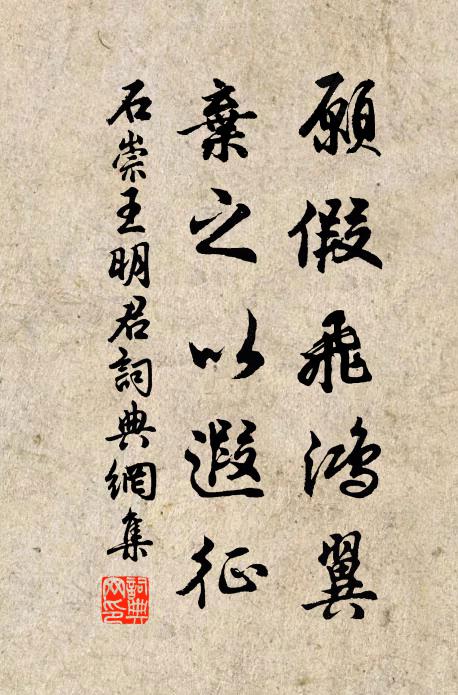 願假飛鴻翼
棄之以遐征
石崇王明君詞典網集
詞典网印